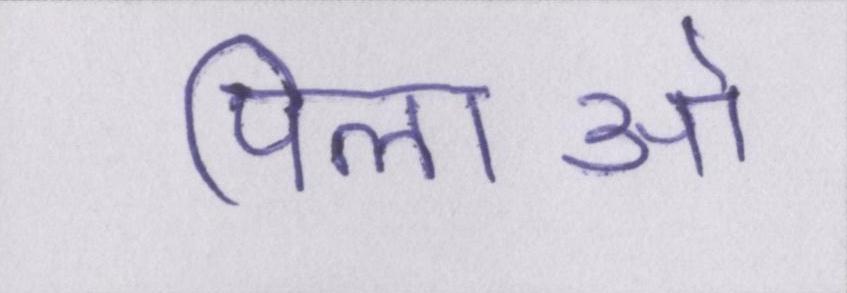 पिलाओ